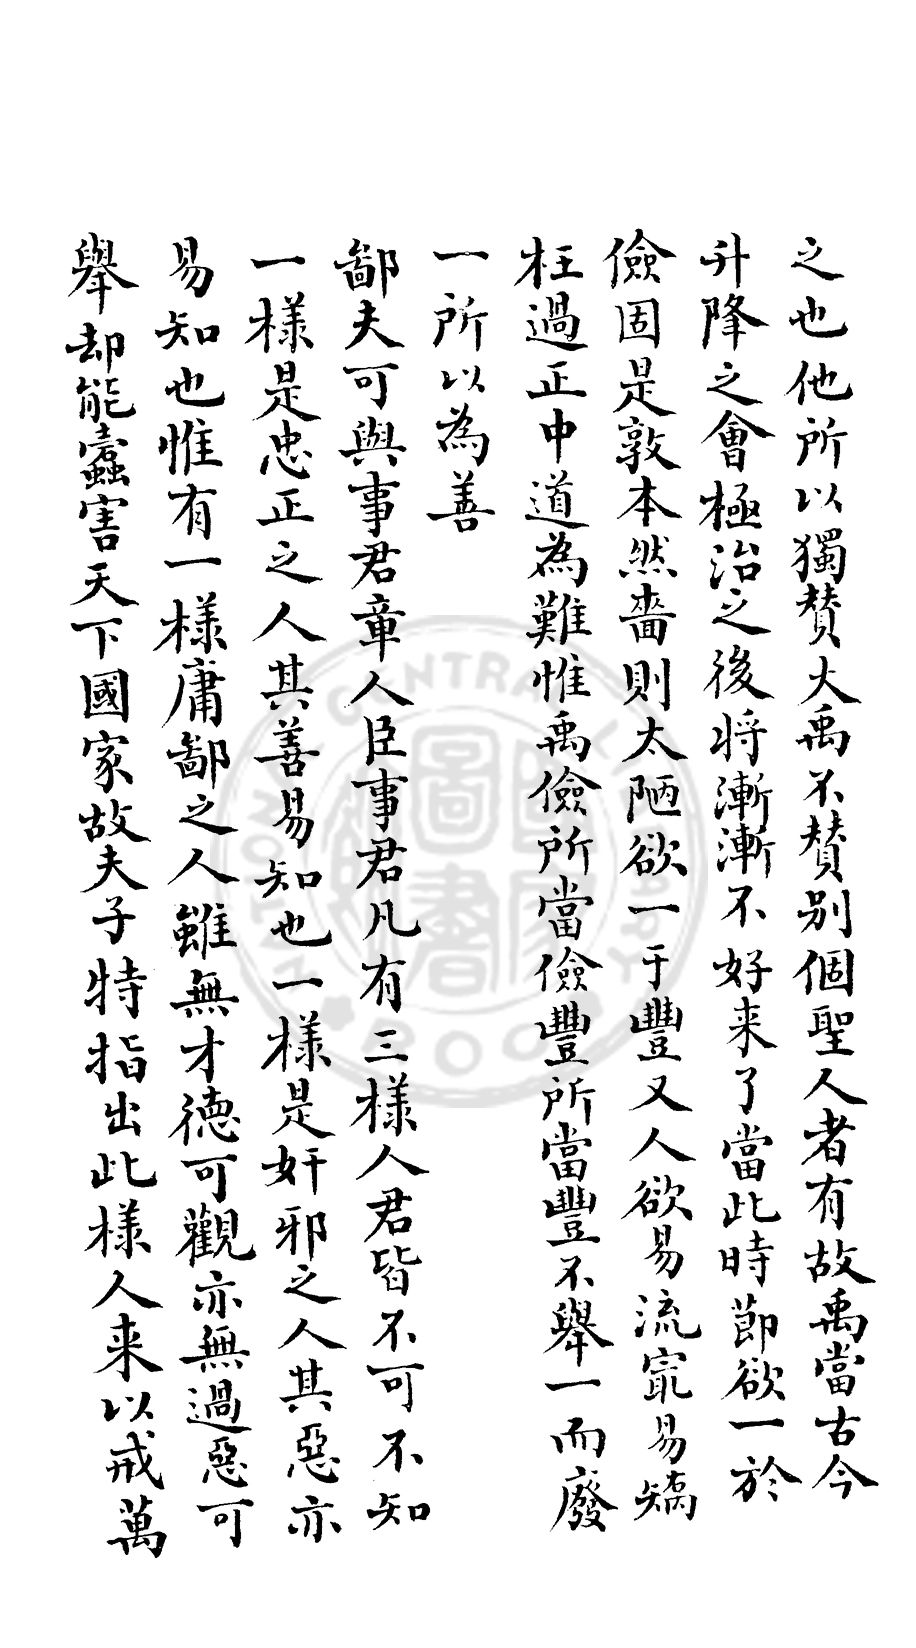 之也他所以獨賛大禹不賛别個聖人者有故禹當古今
升降之會極治之後将漸漸不好来了當此時節欲一於
儉固是敦本然嗇則太陋欲一于豐又人欲易流寔易矯
枉過正中道為難惟禹儉所當儉豐所當豐不舉一而廢
一所以為善
鄙夫可與事君章人臣事君凡有三様人君皆不可不知
一様是忠正之人其善易知也一様是奸邪之人其惡亦
易知也惟有一様庸鄙之人雖無才德可觀亦無過惡可
舉却能蠹害天下國家故夫子特指出此様人来以戒萬
圖書
CENTRAL
2000